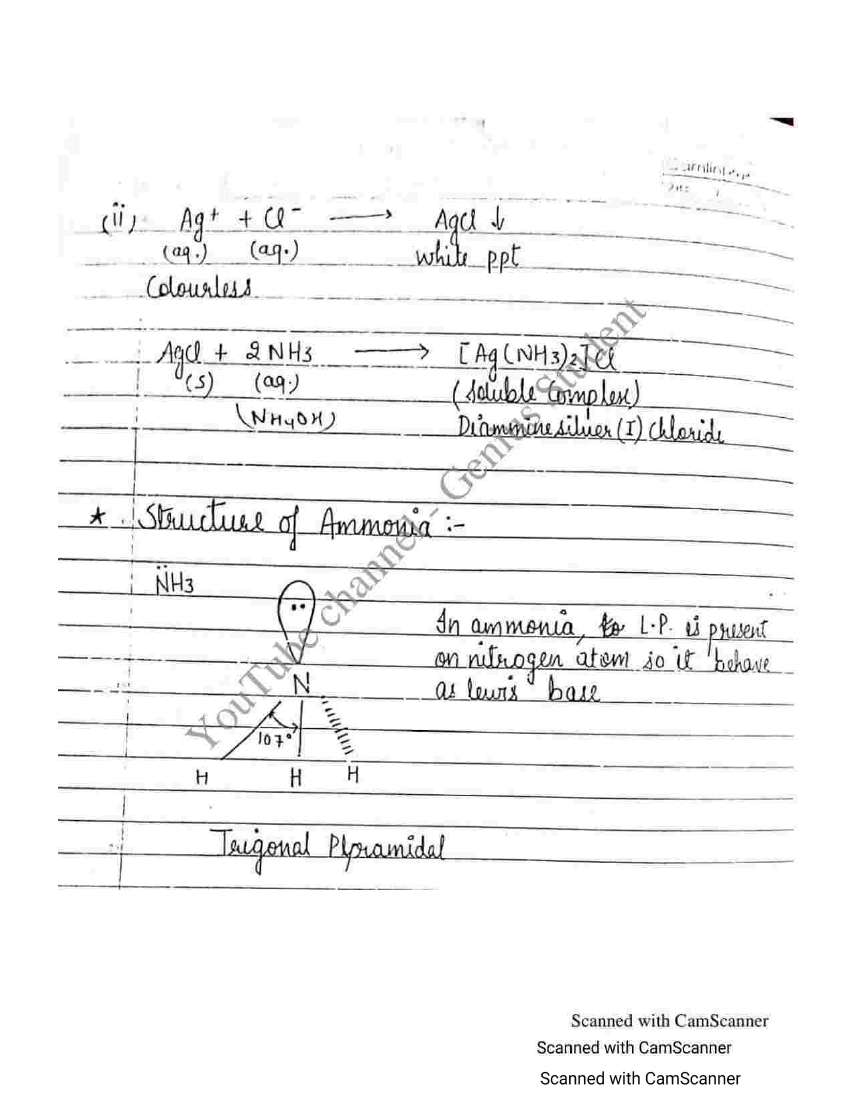 (ii) Ag+ + Cl- ⟶ AgCl ↓
(aq.) (aq.) white ppt
Colourless
AgCl + 2NH3 ⟶ [Ag(NH3)2]Cl
(s) (aq.) (Soluble Complex)
(NH4OH) Diamminesilver(I) Chloride
* Structure of Ammonia :-
N̈H3
In ammonia, L.P. is present
on nitrogen atom so it behave
as lewis base
N
107°
H H H
Trigonal Pyramidal
YouTube channel:- Genius Student
Scanned with CamScanner
Scanned with CamScanner
Scanned with CamScanner